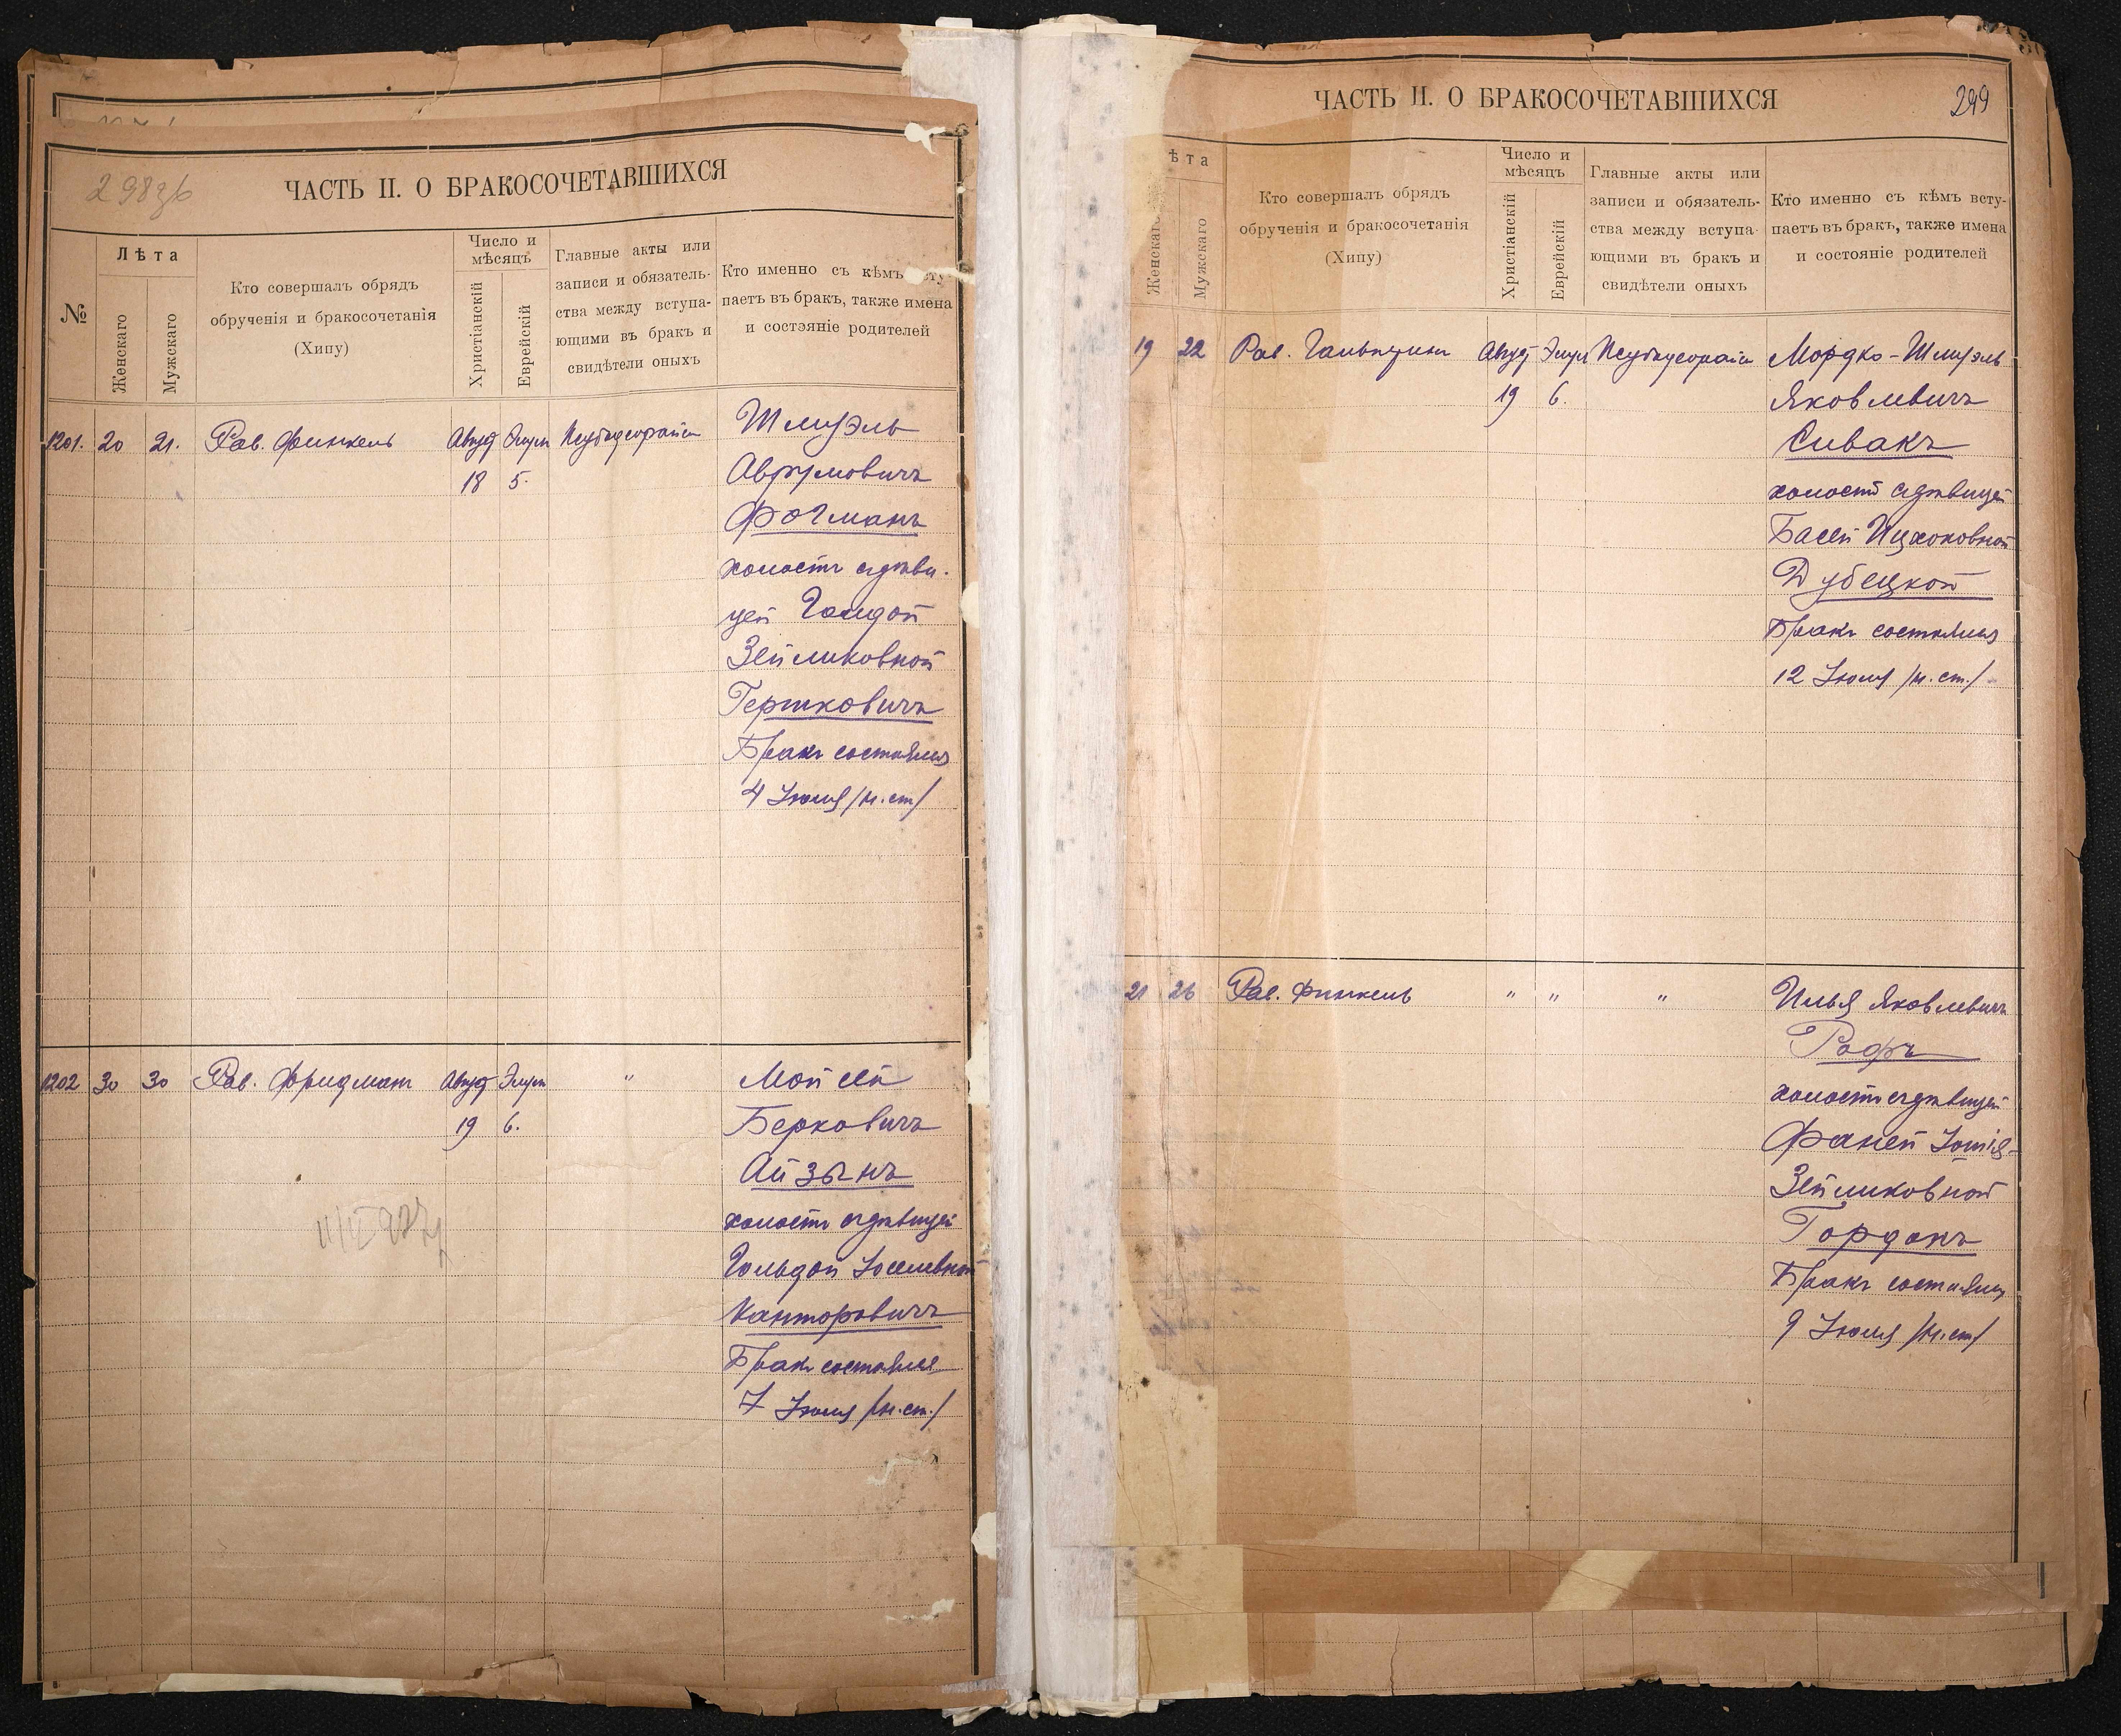 298зб
ЧАСТЬ II. О БРАКОСОЧЕТАВШИХСЯ
№
Лѣта
Женскаго
Мужскаго
Кто совершалъ обрядъ
обрученія и бракосочетанія
(Хипу)
Число и
мѣсяцъ
Христіанскій
Еврейскій
Главные акты или
записи и обязатель-
ства между вступа-
ющими въ бракъ и
свидѣтели оныхъ
Кто именно съ кѣмъ всту-
паетъ въ бракъ, также имена
и состояніе родителей
1201. 20 21. Рав. Финкель Август Элул
18 5.
Шмуэль
Аврумовичъ
Фогманъ
холостъ съ дѣви-
цей Голдой
Зейликовной
Гершковичъ
Бракъ состоялся
4 Іюля /н.ст/
1202 30 30 Рав. Фридман Август Элул "
19 6.
Мойсей
Берковичъ
Айзынъ
холостъ съ дѣвицей
Гольдой Іоселевной
Канторовичъ
Бракъ состоялся
7 Іюля /н.ст./
ЧАСТЬ II. О БРАКОСОЧЕТАВШИХСЯ
299
ѣта
Женскаго
Мужскаго
Кто совершалъ обрядъ
обрученія и бракосочетанія
(Хипу)
Число и
мѣсяцъ
Христіанскій
Еврейскій
Главные акты или
записи и обязатель-
ства между вступа-
ющими въ бракъ и
свидѣтели оныхъ
Кто именно съ кѣмъ всту-
паетъ въ бракъ, также имена
и состояніе родителей
19 22 Рав. Гальперин Август Элул
19 6.
Мордко-Шмуэль
Яковлевичъ
Сивакъ
холостъ съ дѣвицей
Басей Ицхоковной
Дубецкой
Бракъ состоялся
12 Іюля /н.ст./
21 26 Рав. Финкель " " "
Илья Яковлевичъ
Рофъ
холостъ съ дѣвицей
Фаней
Зейликовной
Гордонъ
Бракъ состоялся
9 Іюля /н.ст/